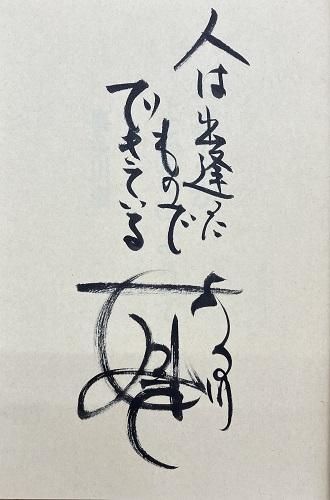 人は出逢った
もので
できている